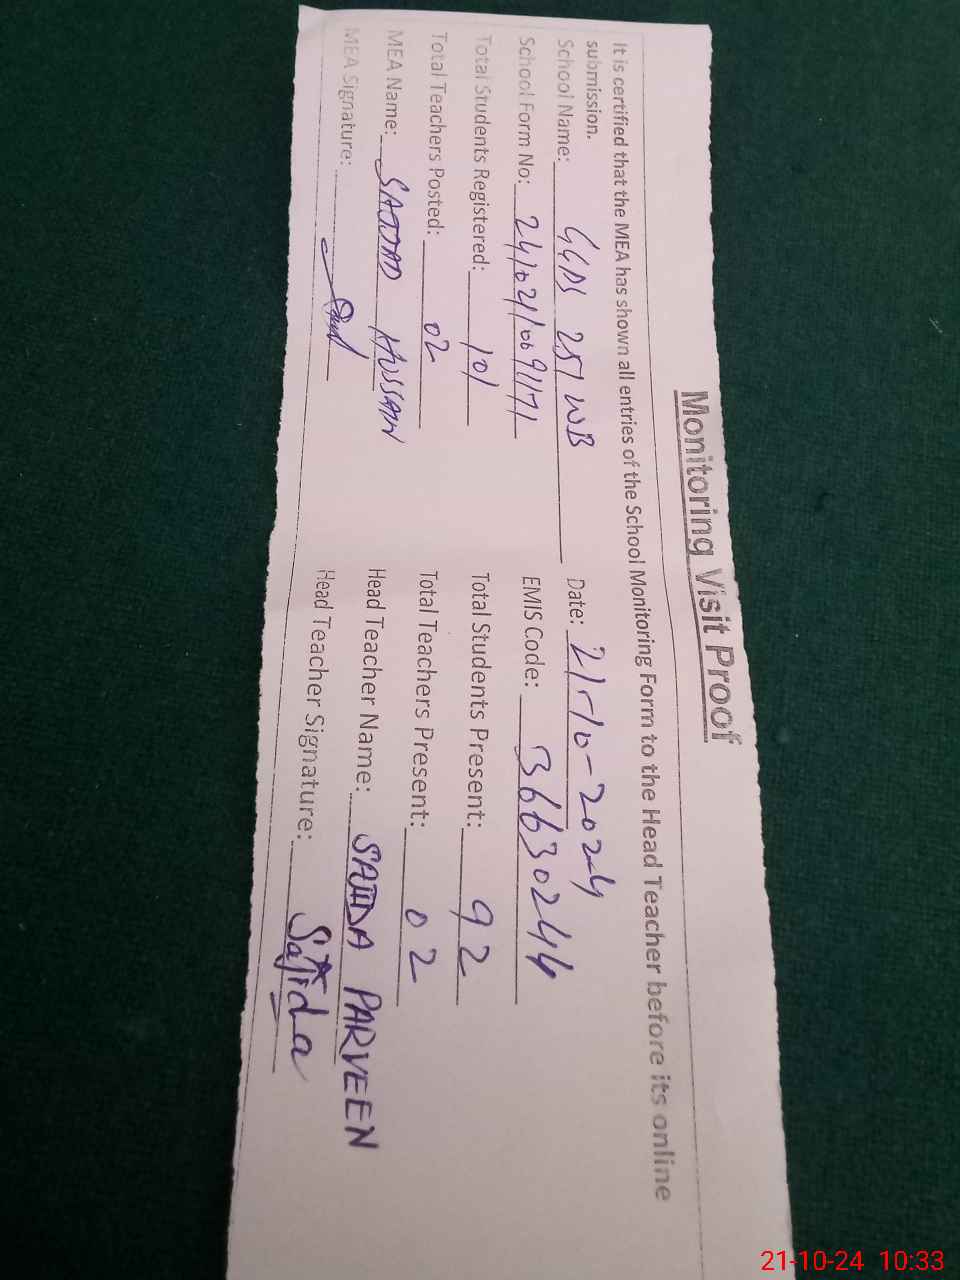 Monitoring Visit Proof
It is certified that the MEA has shown all entries of the School Monitoring Form to the Head Teacher before its online
submission.
School Name: GGPS 251 WB Date: 21-10-2024
School Form No: 241021/0091171 EMIS Code: 36630244
Total Students Registered: 101 Total Students Present: 92
Total Teachers Posted: 02 Total Teachers Present: 02
MEA Name: SAJJAD HUSSAIN Head Teacher Name: SAJIDA PARVEEN
MEA Signature: Head Teacher Signature: Sajida
21-10-24 10:33